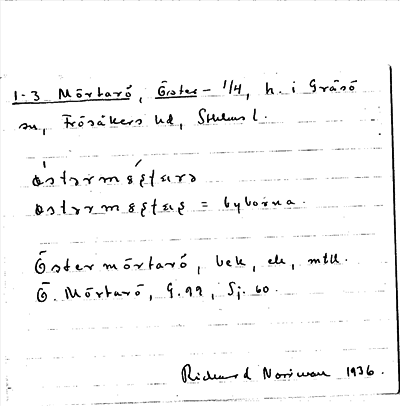 1-3 Mörtarö, Öster- 1/4, h. i Gräsö
sn, Frösåkers hd, Sthlms l.
= byborna.
Östermörtarö, bek, ek, mtlk.
Ö. Mörtarö, G. 99, Sj. 60.
Richard Norrman 1936.